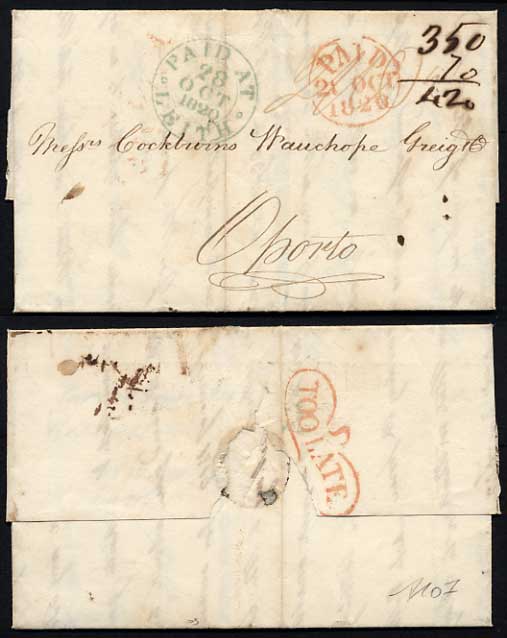 PAID AT
28
OCT
1820
LEITH
PAID
OCT
1820
350
70
420
Messrs Cockburns Wauchope Greig & Co
Oporto
TOO LATE